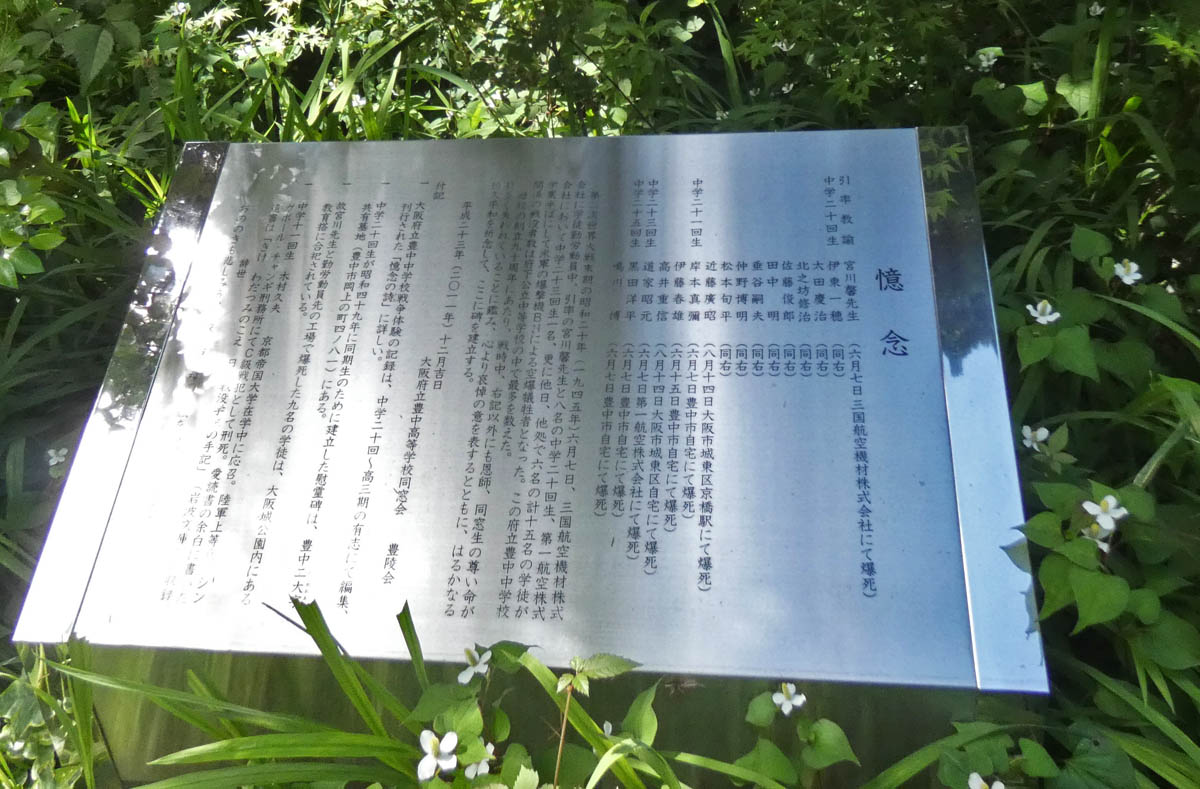 憶念
引率教諭 宮川馨先生 (六月七日三国航空機材株式会社にて爆死)
中学二十回生 伊東一穂 (同右)
大田慶治 (同右)
北之坊脩治 (同右)
佐藤俊郎 (同右)
田中明 (同右)
垂谷嗣夫 (同右)
仲野博明 (同右)
松本旬平 (同右)
近藤廣昭 (八月十四日大阪市城東区京橋駅にて爆死)
中学二十一回生 岸本真彌 (六月七日豊中市自宅にて爆死)
伊藤春雄 (六月十五日豊中市自宅にて爆死)
高井重信 (八月十四日大阪市城東区自宅にて爆死)
中学二十三回生 道家昭元 (六月七日第一航空株式会社にて爆死)
中学二十五回生 黒田洋平 (六月七日豊中市自宅にて爆死)
鳴川博 (六月七日豊中市自宅にて爆死)
世界大戦末期の昭和二十年(一九四五年)六月七日、三国航空機材株式
会社に学徒勤労動員中、引率の宮川馨先生と八名の中学二十回生、第一航空株式
会社において中学二十三回生一名、更に他日、他処で六名の計十五名の学徒が
学業半ばにして米軍の爆撃機による空爆犠牲者となった。この府立豊中中学校
関係の戦没者数は府下公立中等学校の中で最多を数えた。
創立九十周年にあたり、戦時中、右記以外にも恩師、同窓生の尊い命が
失われていることに鑑み、心より哀悼の意を表するとともに、はるかなる
平和を祈念して、ここに碑を建立する。
平成二十三年(二〇一一年)十二月吉日
大阪府立豊中高等学校同窓会 豊陵会
付記
一 大阪府立豊中中学校戦争体験の記録は、中学二十回~高三期の有志にて編集、
刊行された「憶念の詩」に詳しい。
一 中学二十回生が昭和四十九年に同期生のために建立した慰霊碑は、豊中
共有墓地(豊中市岡上の町四ノ八一)にある。
一 故宮川先生と勤労動員先の工場で爆死した九名の学徒は、大阪城公園内にある
教育塔に合祀されている。
一 中学十一回生 木村久夫 京都帝国大学在学中に応召。陸軍上等
チャンギ刑務所にてC級戦犯として刑死。愛読書の余白に書
「きけ わだつみのこえ の手記」
辞世